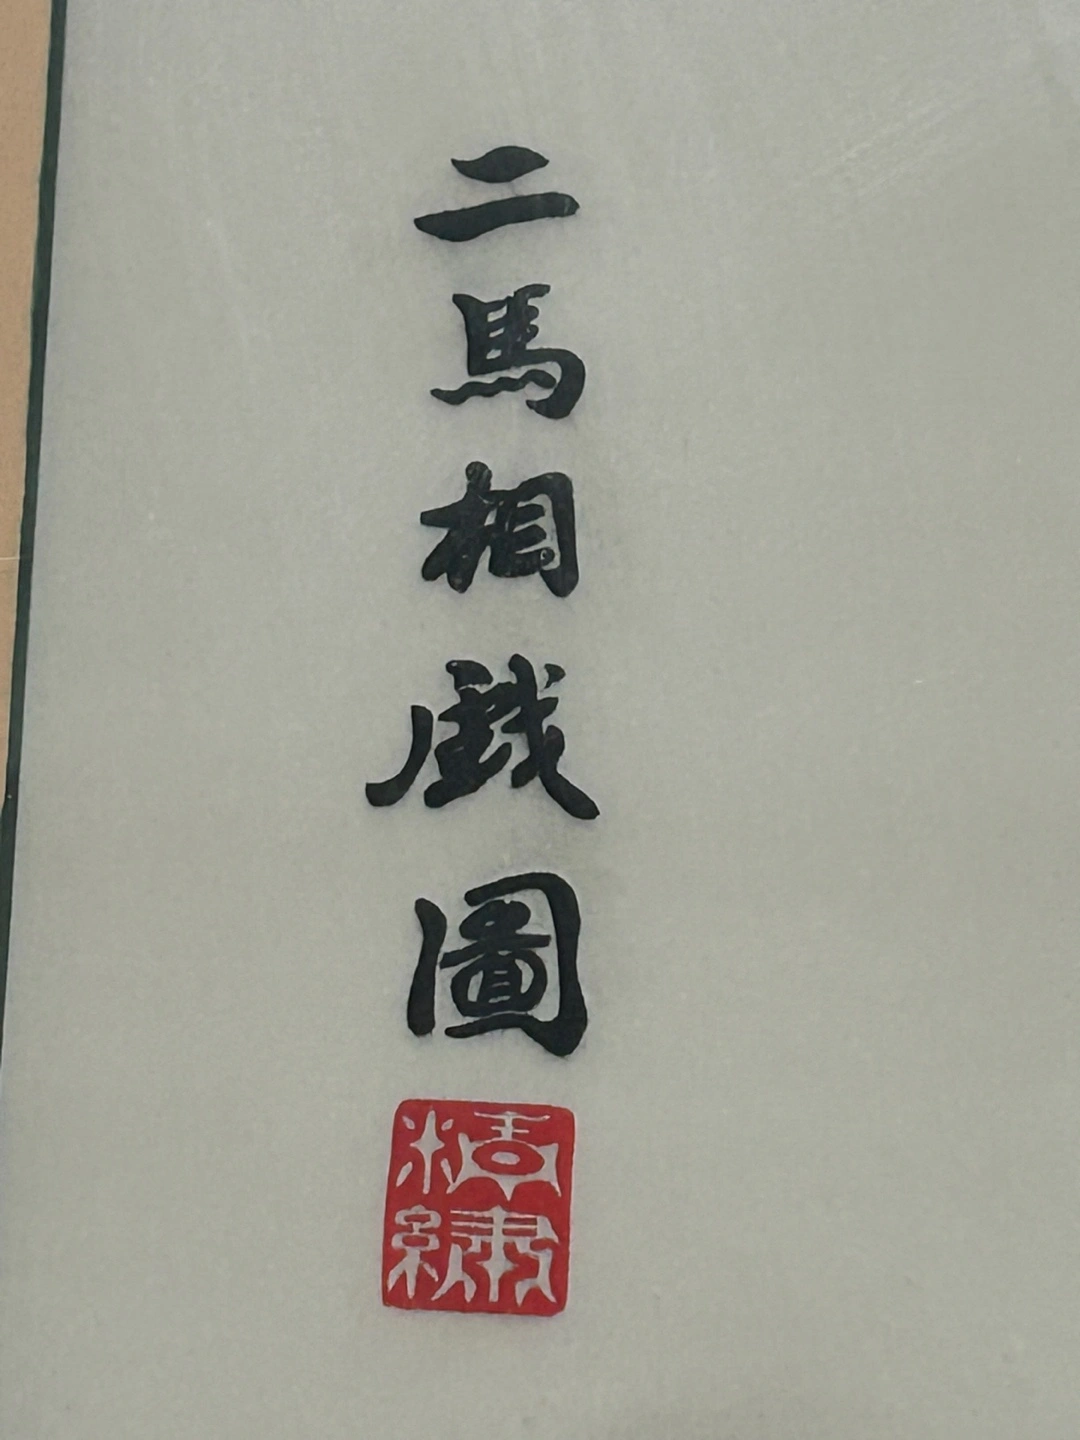 二馬相戯圖